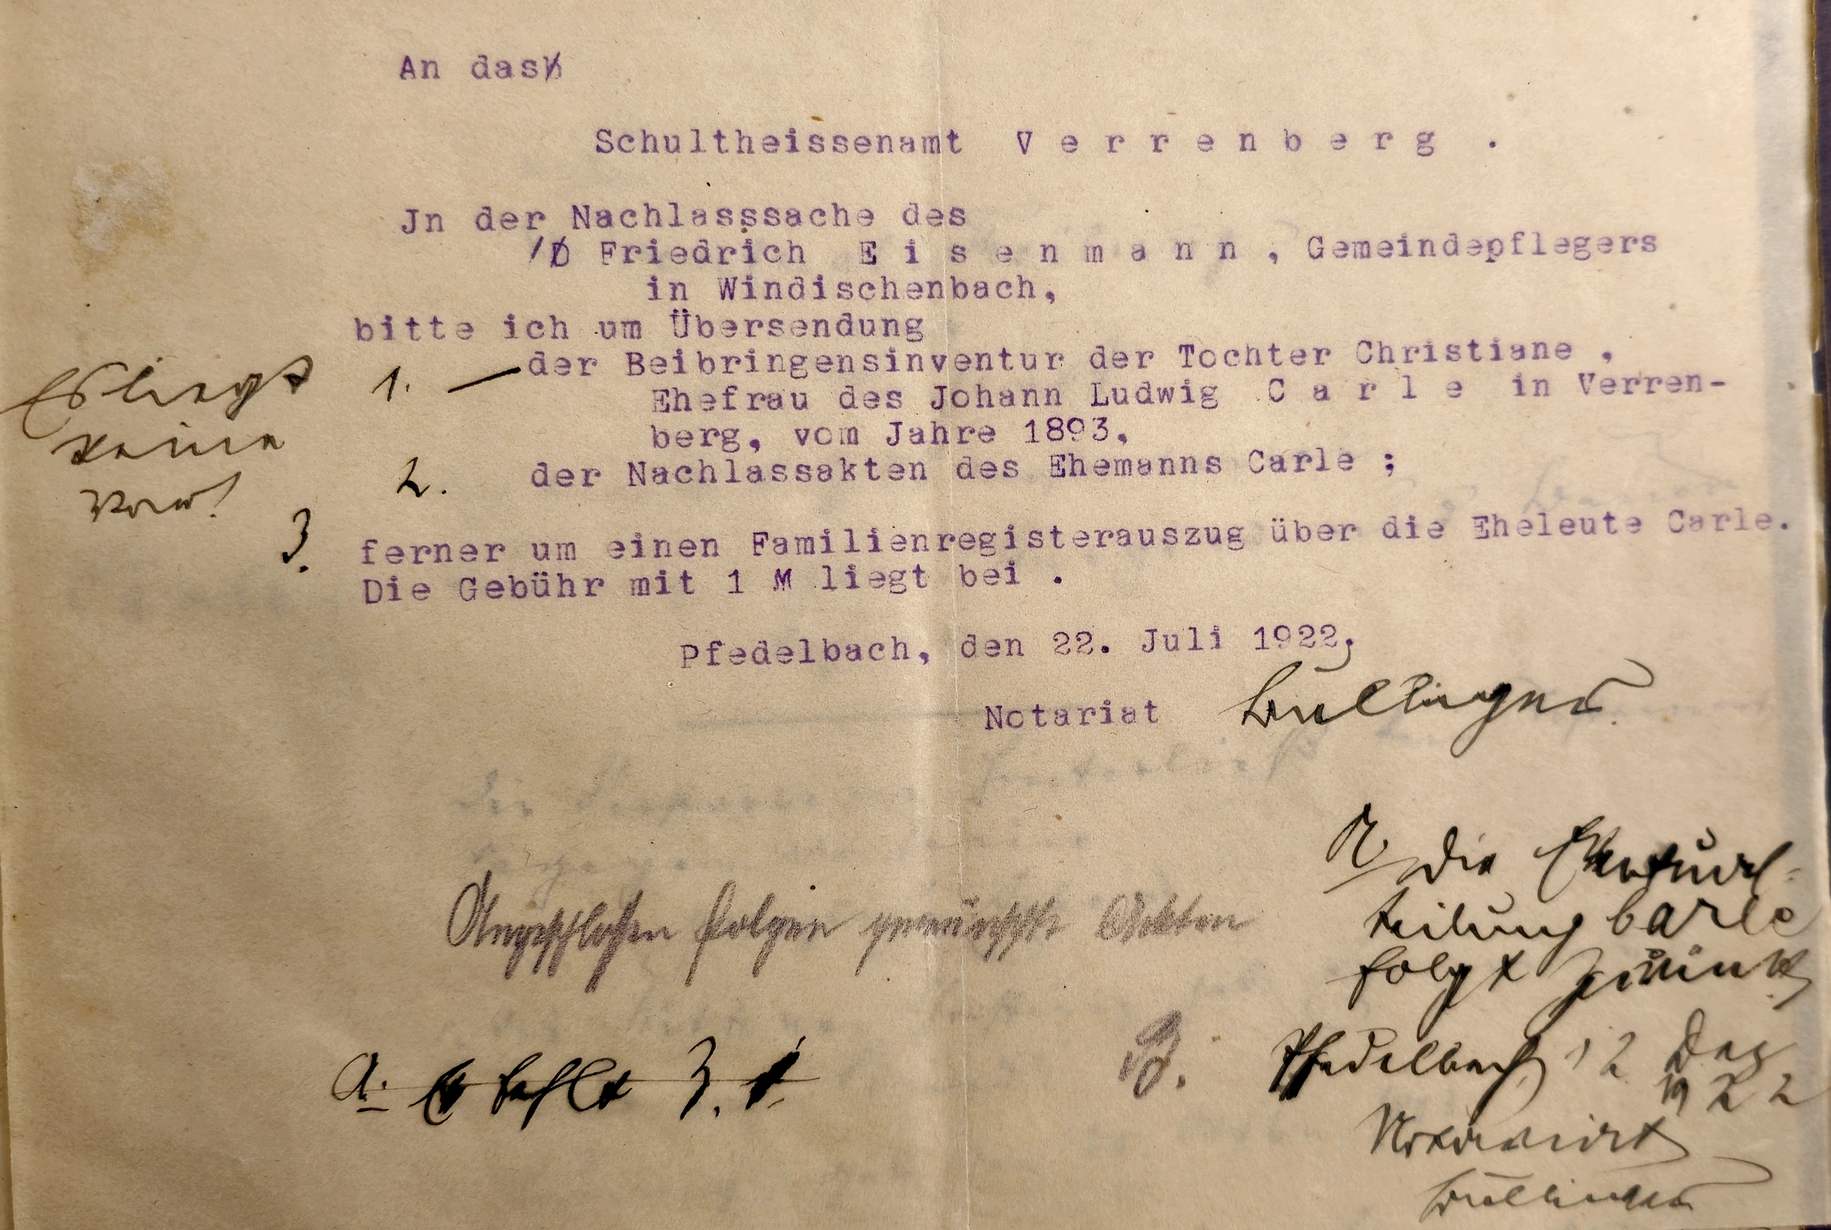 An das
Schultheissenamt V e r r e n b e r g .
Jn der Nachlasssache des
Friedrich E i s e n m a n n , Gemeindepflegers
in Windischenbach,
bitte ich um Übersendung
1. — der Beibringensinventur der Tochter Christiane ,
Ehefrau des Johann Ludwig C a r l e in Verren-
berg, vom Jahre 1893,
2. der Nachlassakten des Ehemanns Carle ;
3. ferner um einen Familienregisterauszug über die Eheleute Carle.
Die Gebühr mit 1 M liegt bei .
Es liegt
keine
vor!
Pfedelbach, den 22. Juli 1922.
Notariat Bullinger
Angeschlossen folgen gewünschte Akten
B.
A. Es fehlt 3.
N. die
teilung Carle
folgt zurück
Pfedelbach 12 Dez
1922
Notariat
Bullinger